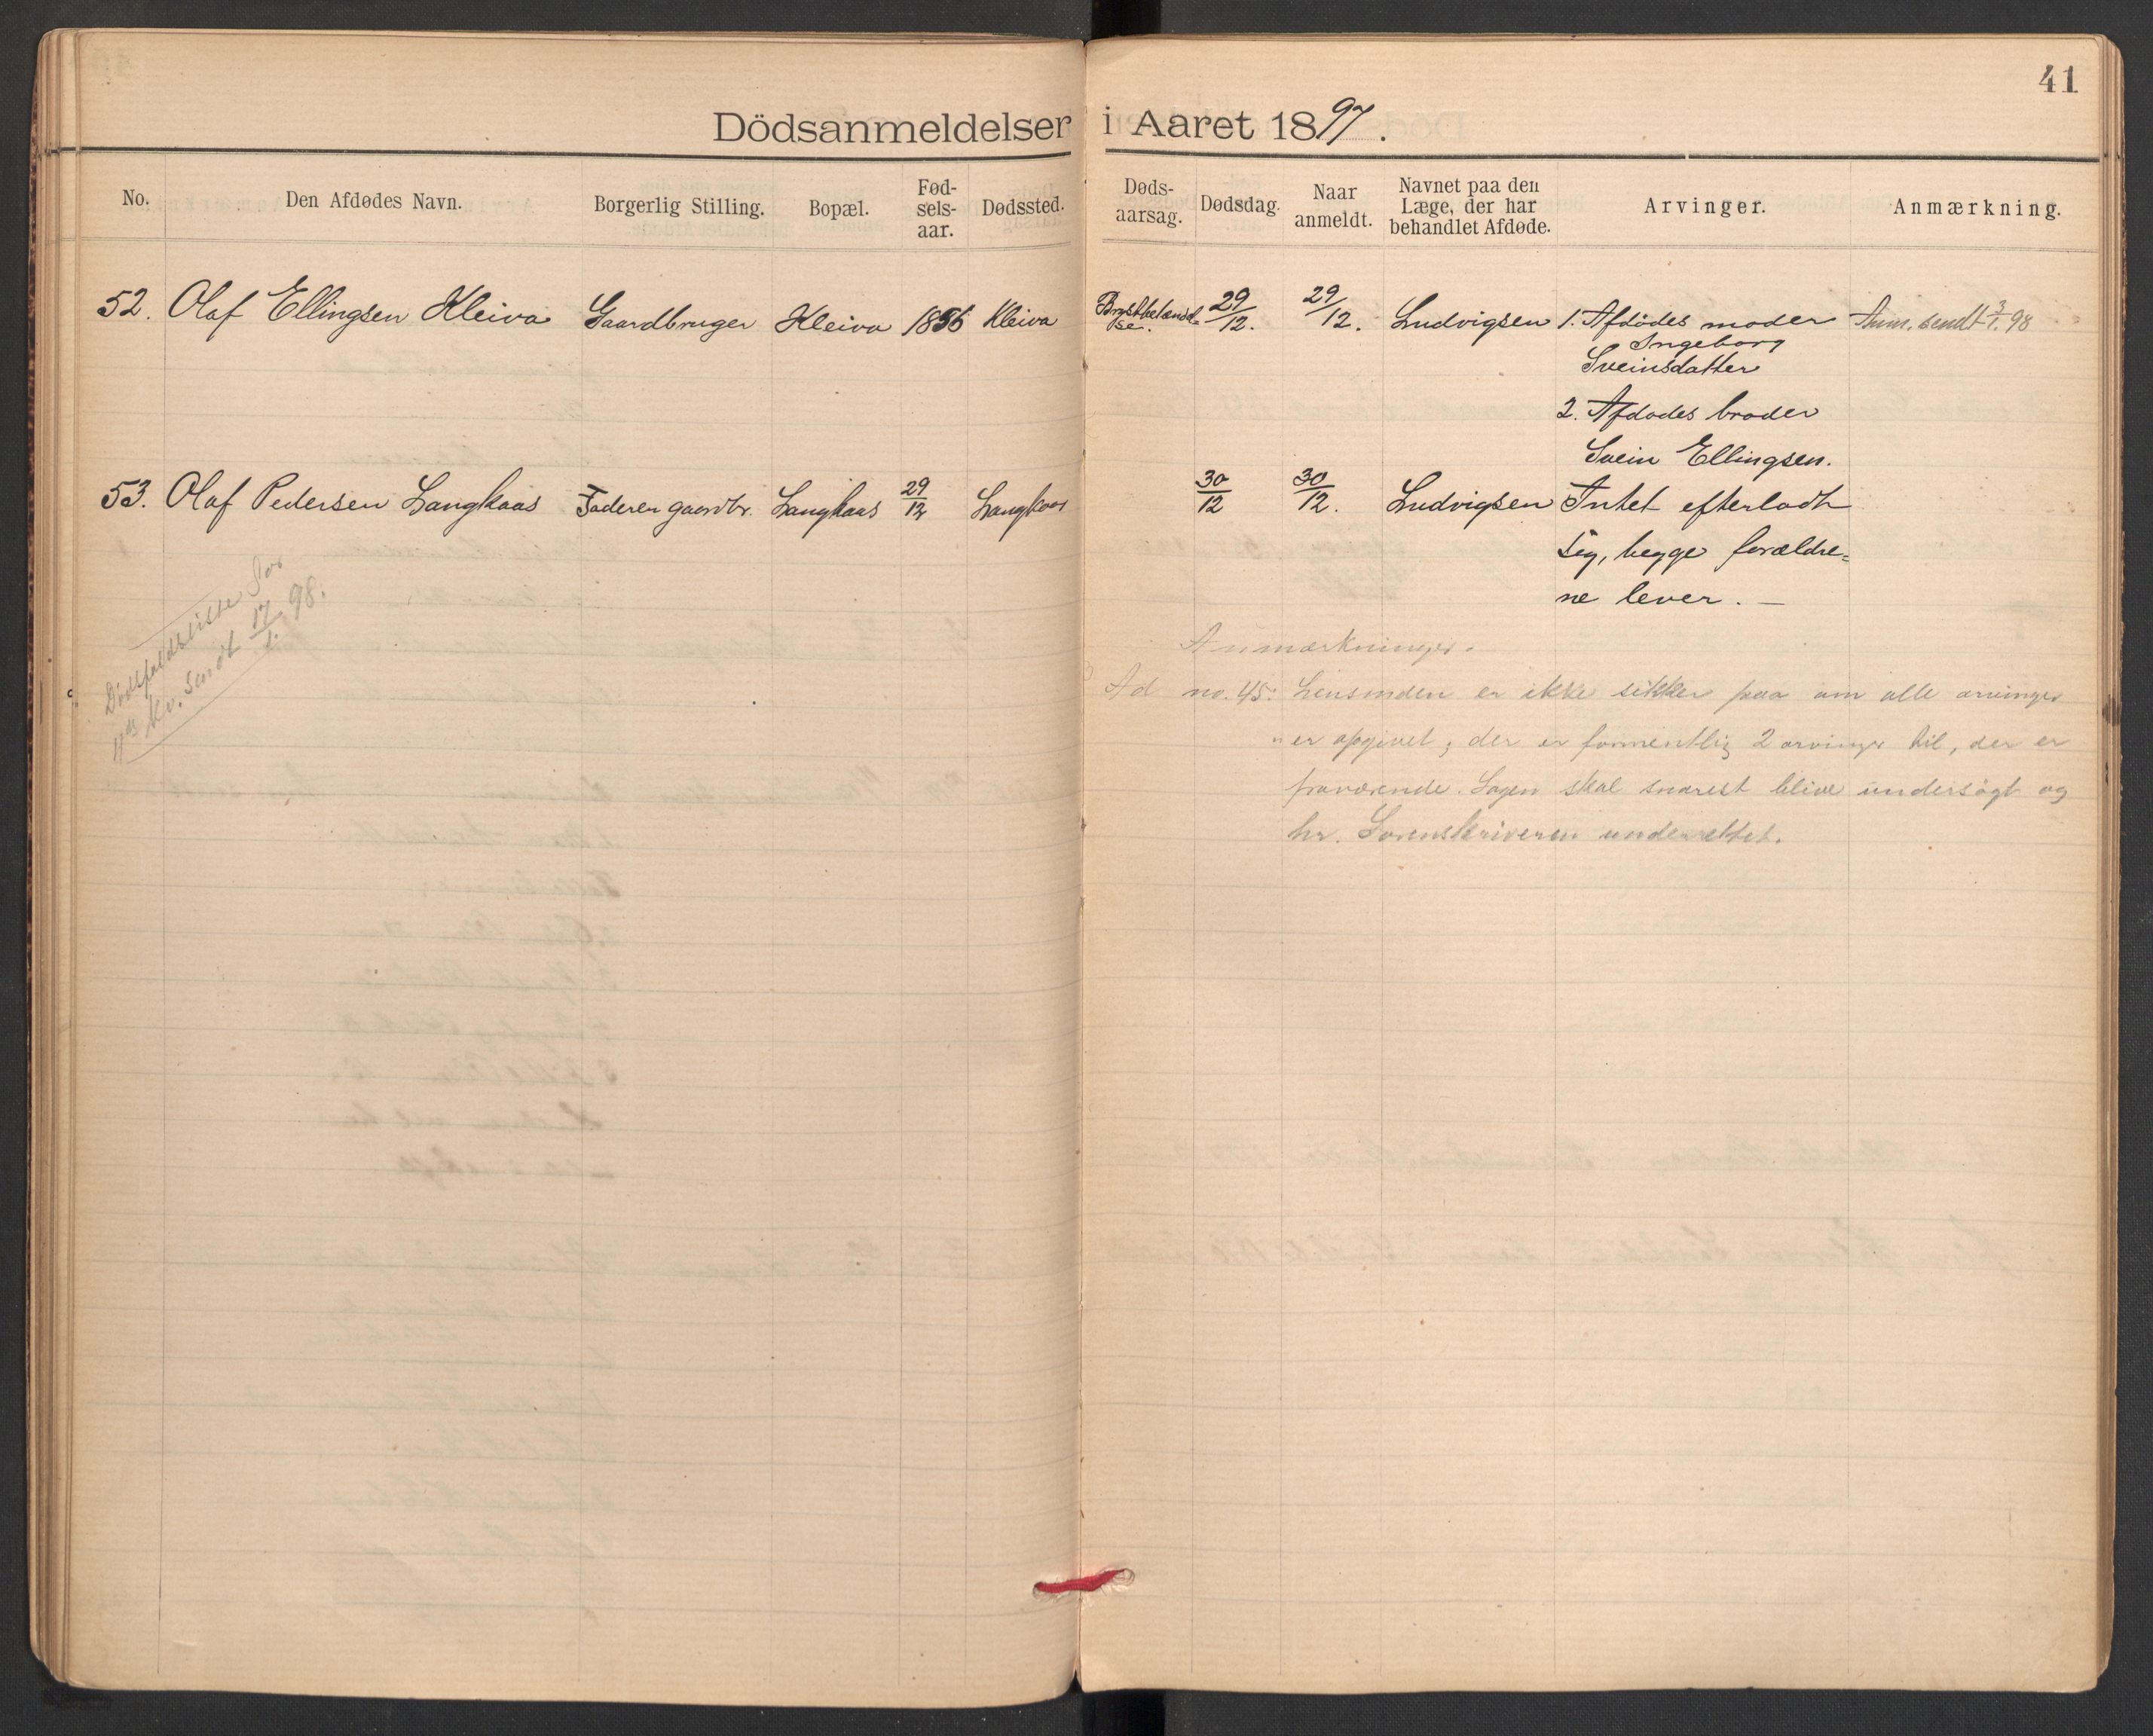 41
Dödsanmeldelser i Aaret 1897.
No. Den Afdødes Navn. Borgerlig Stilling. Bopæl. Fød-sels-aar. Dødssted. Døds-aarsag. Dødsdag. Naar anmeldt. Navnet paa den Læge, der har behandlet Afdøde. Arvinger. Anmærkning.
52. Olaf Ellingsen Kleiva Gaardbruger Kleiva 1856 Kleiva 29/12. 29/12. Ludvigsen 1. Afdödes moder Anm. sendt 3/1. 98
Ingeborg
Sveinsdatter
2. Afdødes broder
Svein Ellingsen.
53. Olaf Pedersen Langkaas Faderen gaardbr. Langkaas 29/12 Langkaas 30/12 30/12. Ludvigsen Intet efterladt
sig, begge forældre=
ne lever. —
Dödsfaldsliste for
kv. sendt 17/1. 98.
Anmærkninger.
Ad no. 45: Lensmden er ikke sikker paa om alle arvinger
er opgivet, der er formentlig 2 arvinger til, der er
fraværende. Sagen skal snarest blive undersögt og
hr. Sorenskriveren underrettet.